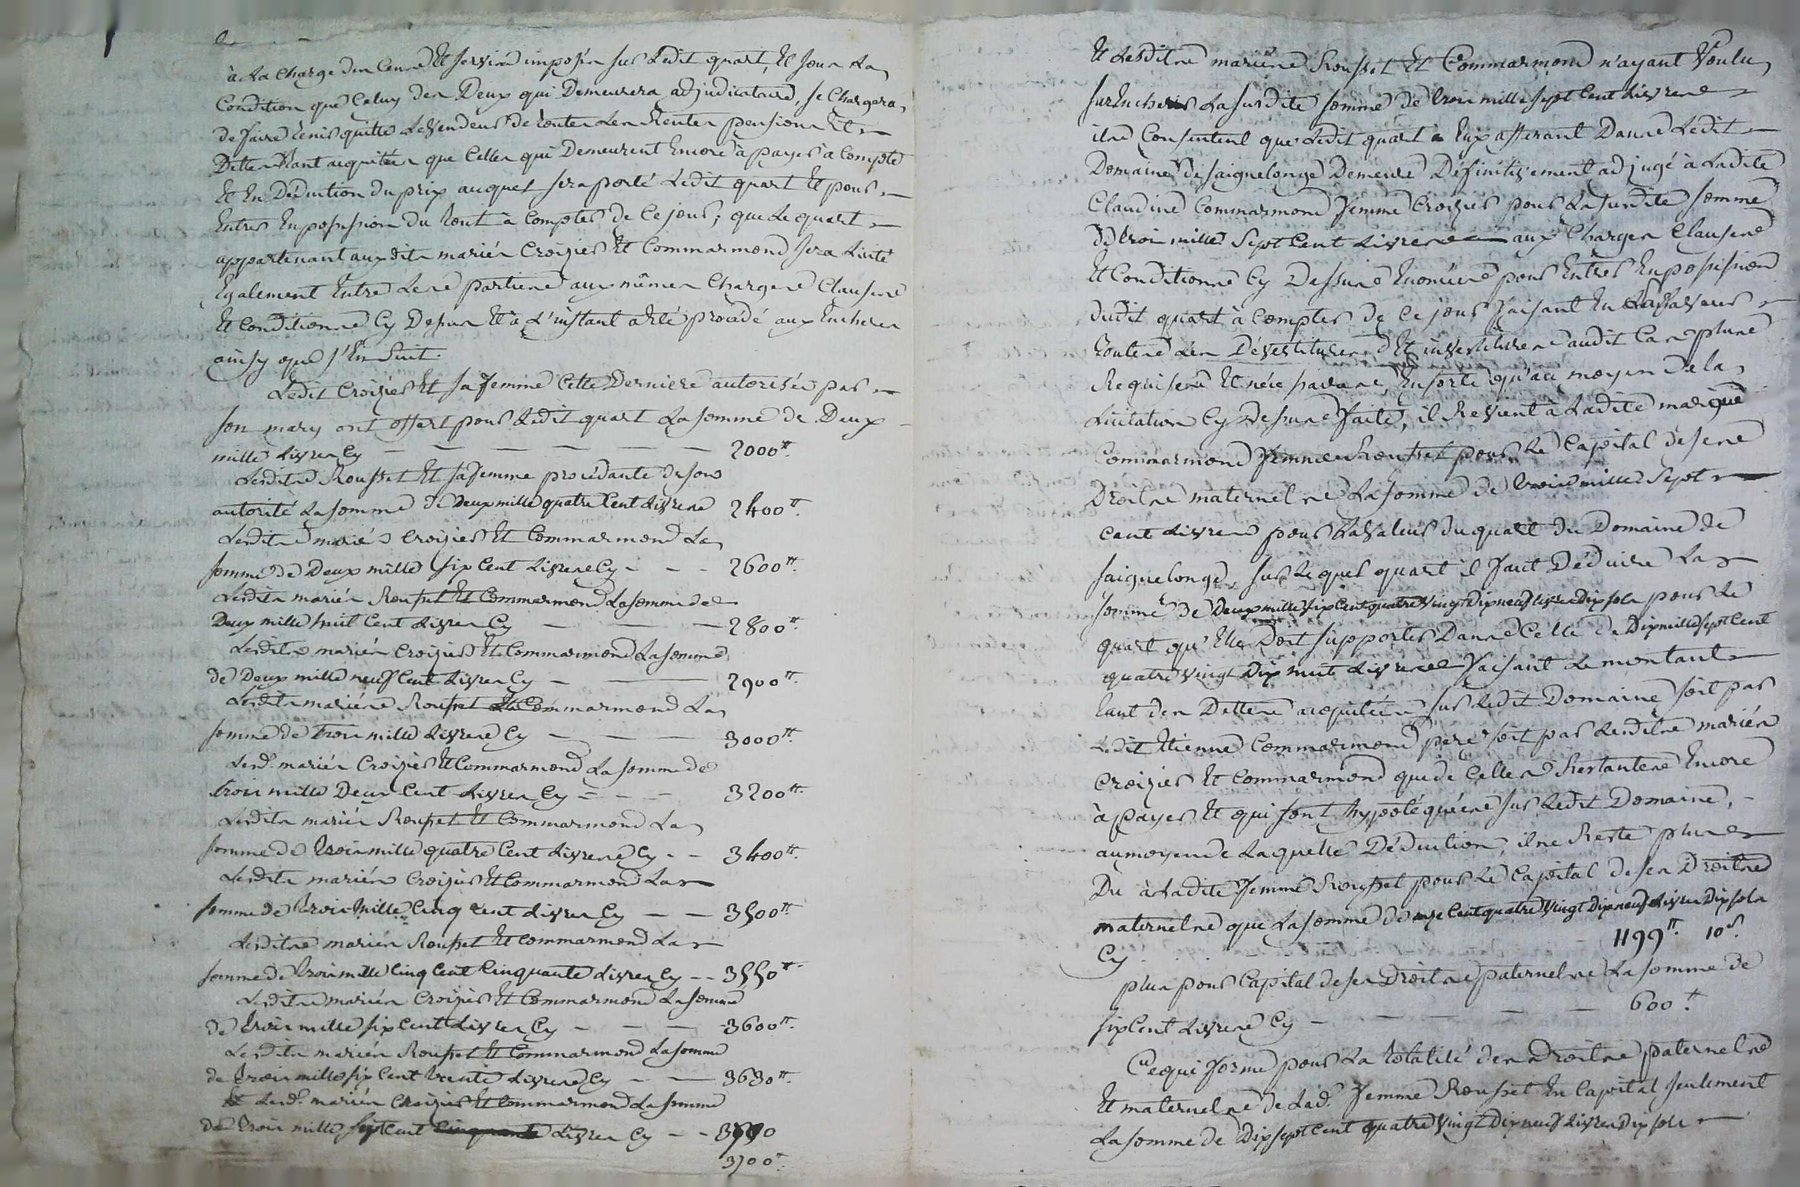 à La charge des Cens Et servis imposés sur Ledit quart, Et sous La
Condition que Celuy des Deux qui Demeurera adjudicataire, se Chargera
de faire tenir quitte Le Vendeur de toutes Les Rentes pensions Et
Dettes tant acquitées que Celles qui Demeurent Encore à payer à Compte
Et En Déduction du prix auquel sera porté Ledit quart Et pour
Entrer En possession du tout à Compter de Ce jour; que Le quart
appartenant auxdits mariés Croizier Et Commarmond sera Licité
Egalement Entre Les parties aux mêmes Charges Clauses
Et Conditions Cy Dessus Et à L'instant a été procédé aux Encheres
ainsy que s'En suit.
Ledit Croizier Et sa femme Cette Derniere autorisée par
son mary ont offert pour Ledit quart La somme de Deux
mille Livres Cy 2000ᵗᵗ
Lesdits Rousset Et sa femme procédante de son
autorité La somme de Deux mille quatre Cent Livres 2400ᵗᵗ
Lesdits mariés Croizier Et Commarmond La
somme de Deux mille six Cent Livres Cy 2600ᵗᵗ
Lesdits mariés Rousset Et Commarmond La somme de
Deux mille huit Cent Livres Cy 2800ᵗᵗ
Lesdits mariés Croizier Et Commarmond La somme
de Deux mille neuf Cent Livres Cy 2900ᵗᵗ
Lesdits mariés Rousset Et Commarmond La
somme de trois mille Livres Cy 3000ᵗᵗ
Lesd. mariés Croizier Et Commarmond La somme de
trois mille Deux Cent Livres Cy 3200ᵗᵗ
Lesdits mariés Rousset Et Commarmond La
somme de trois mille quatre Cent Livres Cy 3400ᵗᵗ
Lesdits mariés Croizier Et Commarmond La
somme de trois mille Cinq Cent Livres Cy 3500ᵗᵗ
Lesdits mariés Rousset Et Commarmond La
somme de trois mille Cinq Cent Cinquante Livres Cy 3550ᵗᵗ
Lesdits mariés Croizier Et Commarmond La somme
de trois mille six Cent Livres Cy 3600ᵗᵗ
Lesdits mariés Rousset Et Commarmond La somme
de trois mille six Cent trente Livres Cy 3630ᵗᵗ
Et Lesd. mariés Croizier Et Commarmond La somme
de trois mille sept Cent Cinquante Livres Cy
3700
Et Lesdits mariés Rousset Et Commarmond n'ayant Voulu
surEncherir La susdite somme de trois mille sept Cent Livres
ils Consentent que Ledit quart Eux afferant Dans Ledit
Domaine de saignelonge Demeure Définitivement adjugé à Ladite
Claudine Commarmond femme Croizier pour La susdite somme
de trois mille sept Cent Livres aux Charges Clauses
Et Conditions Cy Dessus Enoncées pour Entrer En possession
dudit quart à Compter de Ce jour faisant En sa faveur
toutes Les Devestitures Et investitures audit Cas plus
Requises Et nécessaires, Ensorte qu'au moyen de la
Licitation Cy Dessus faite, il Revient à Ladite
Commarmond femme Rousset pour Le Capital de ses
Droits maternels La somme de trois mille sept
cent Livres pour La Valeur du quart du Domaine de
saignelonge, sur Le quel quart il faut Déduire La
somme de Deux mille six Cent quatre Vingt Dix neuf Livres Dix sols pour Le
quart qu'Elle Doit supporter Dans Celle de Dix mille sept Cent
quatre Vingt Dix huit Livres faisant Le montant
tant des Dettes acquitées sur Ledit Domaine soit par
Ledit Etienne Commarmond pere soit par Lesdits mariés
Croizier Et Commarmond que de Celles Restantes Encore
à payer Et qui sont hypotéquées sur Ledit Domaine,
au moyen de Laquelle Déduction, il ne Reste plus
Du à Ladite femme Rousset pour Le Capital de ses Droits
maternels que La somme de Cent quatre Vingt Dix neuf Livres Dix sols
Cy 1199ᵗᵗ 10ˢ
plus pour Capital de ses Droits paternels La somme de
six Cent Livres Cy 600ᵗᵗ
Ce qui forme pour La totalité des Droits paternels
Et maternels de Lad. femme Rousset En Capital seulement
La somme de Dix sept Cent quatre Vingt Dix neuf Livres Dix sols